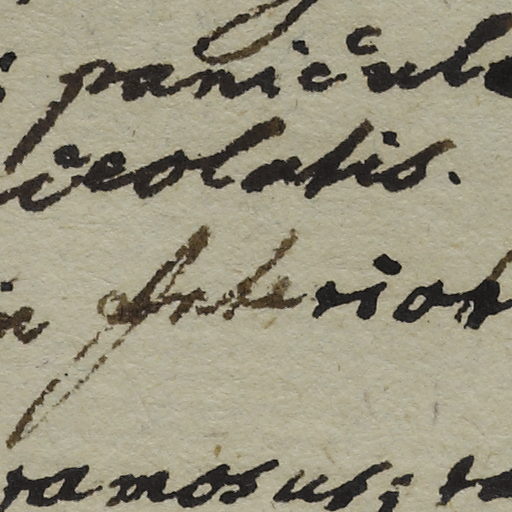 panicul
ceolatis.
Interior
ramosus; t